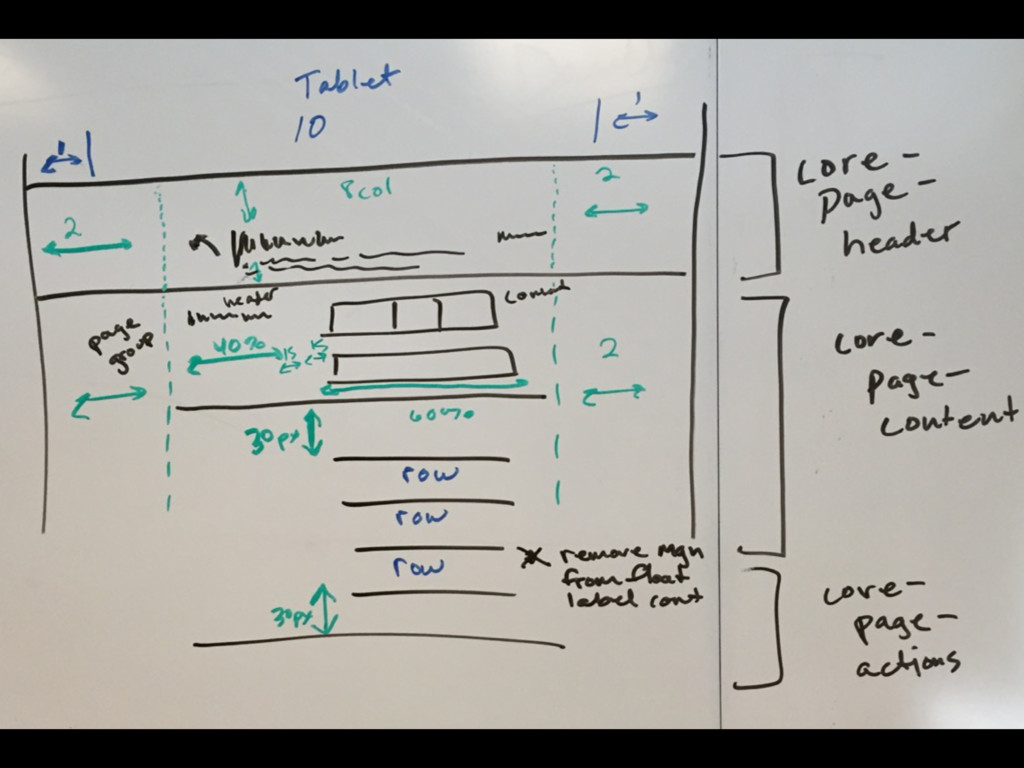 Tablet
10
1
1
8col
2
2
core-
page-
header
header
page
group
40%
15
15
2
60%
30px
core-
page-
content
row
row
row
* remove mgn
from float
label cont
30px
core-
page-
actions